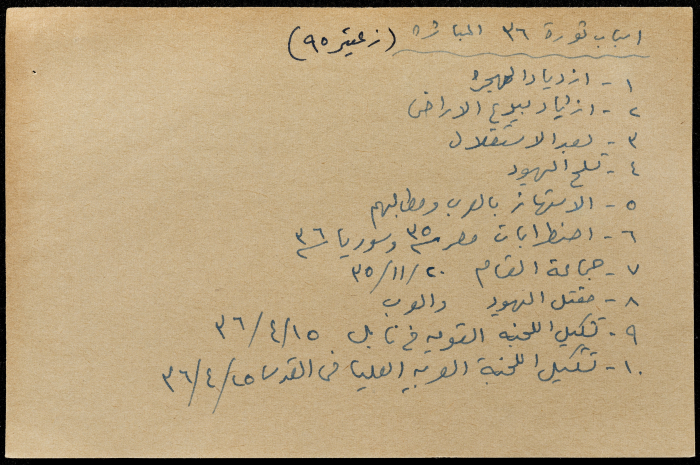 اسباب ثورة ٣٦ المباشرة (زعيتر ٩٥)
١ - ازدياد الهجرة
٢ - ازدياد بيوع الاراضي
٣ - بعد الاستقلال
٤ - تسلح اليهود
٥ - الاستهتار بالعرب ومطالبهم
٦ - اضطرابات مصر ٣٥ وسوريا ٣٦
٧ - جماعة القسام ٢٠/١١/٣٥
٨ - مقتل اليهود والعرب
٩ - تشكيل اللجنة القومية في نابلس ١٥/٤/٣٦
١٠ - تشكيل اللجنة العربية العليا في القدس ٢٥/٤/٣٦